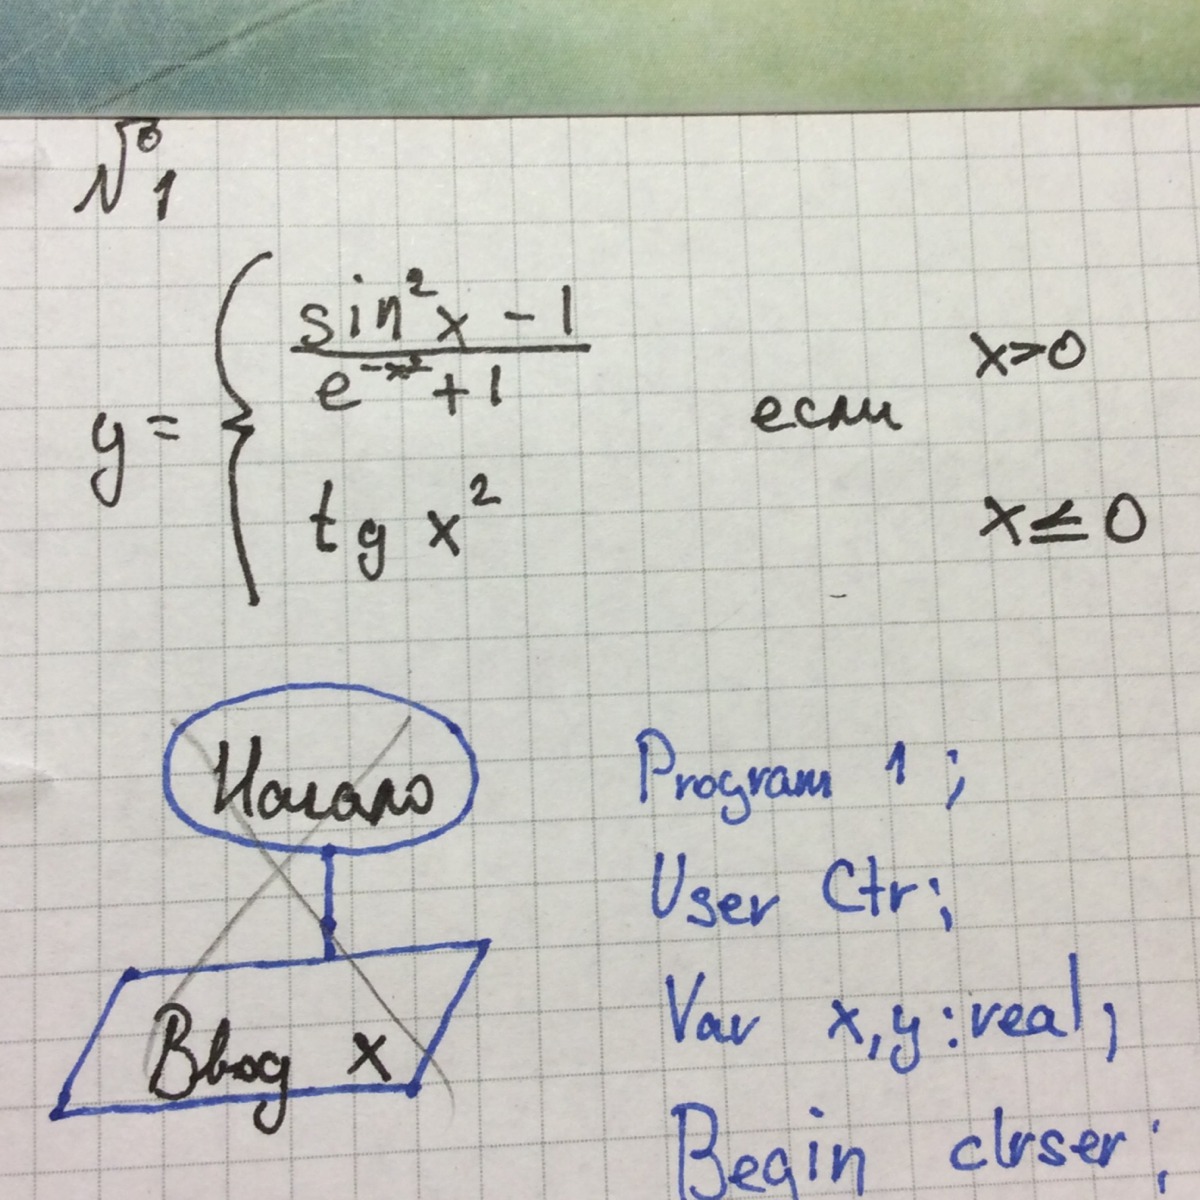 №1
y = { (sin²x - 1) / (e^(-x²) + 1) если x>0
tg x² x≤0
Начало
Ввод x
Program 1;
User Ctr;
Var x,y:real;
Begin clrser;